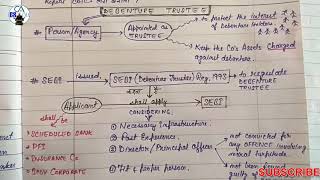 DEBENTURE TRUSTEE
# Person/Agency
Appointed as
TRUSTEE
to protect the interest
of Debenture holders.
Keep the Co's Assets Charged
against debenture.
# SEBI
issued
SEBI (Debenture Trustee) Reg, 1993
to regulate
DEBENTURE
TRUSTEE
Applicant
shall apply
SEBI
CONSIDERING
shall be
SCHEDULED BANK
PFI
INSURANCE Co
BODY CORPORATE
① Necessary Infrastructure.
② Past Experience.
③ Director/Principal officer
④ Fit & proper person.
not convicted for
any OFFENCE involving
moral turpitude.
not been found
guilty of
SUBSCRIBE